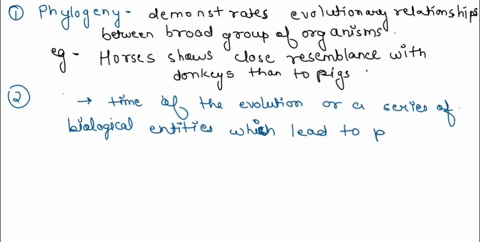 ① Phylogeny - demonstrates evolutionary relationships
between broad group of organisms.
eg - Horses shows close resemblance with
donkeys than to pigs.
② → time of the evolution or a series of
biological entities which lead to p